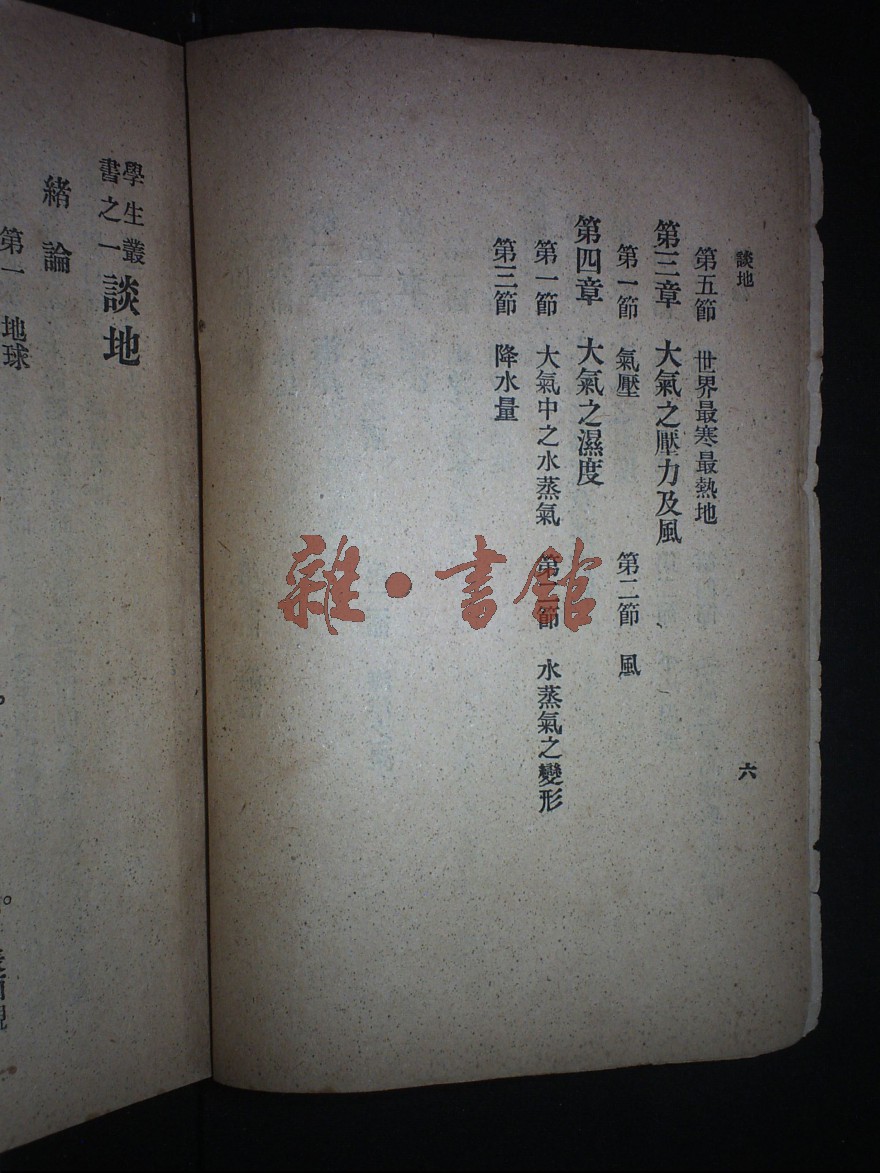 談地
六
第五節　世界最寒最熱地
第三章　大氣之壓力及風
第一節　氣壓　第二節　風
第四章　大氣之濕度
第一節　大氣中之水蒸氣　第二節　水蒸氣之變形
第三節　降水量
雜·書館
學生叢書之一 談地
緒論
第一　地球